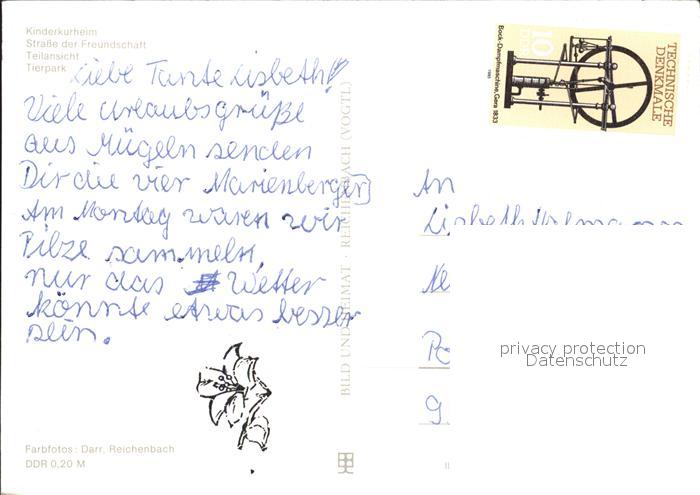 Kinderkurheim
Straße der Freundschaft
Teilansicht
Tierpark
Liebe Tante Lisbeth!
Viele Urlaubsgrüße
aus Mügeln senden
Dir die vier Marienberger
Am Montag waren wir
Pilze sammeln,
nur das Wetter
könnte etwas besser
sein.
Farbfotos: Darr, Reichenbach
DDR 0,20 M
BILD UND HEIMAT · REICHENBACH (VOGTL)
TECHNISCHE
DENKMALE
10
DDR
Bock-Dampfmaschine, Gera 1833
1985
An
Lisbeth
privacy protection
Datenschutz